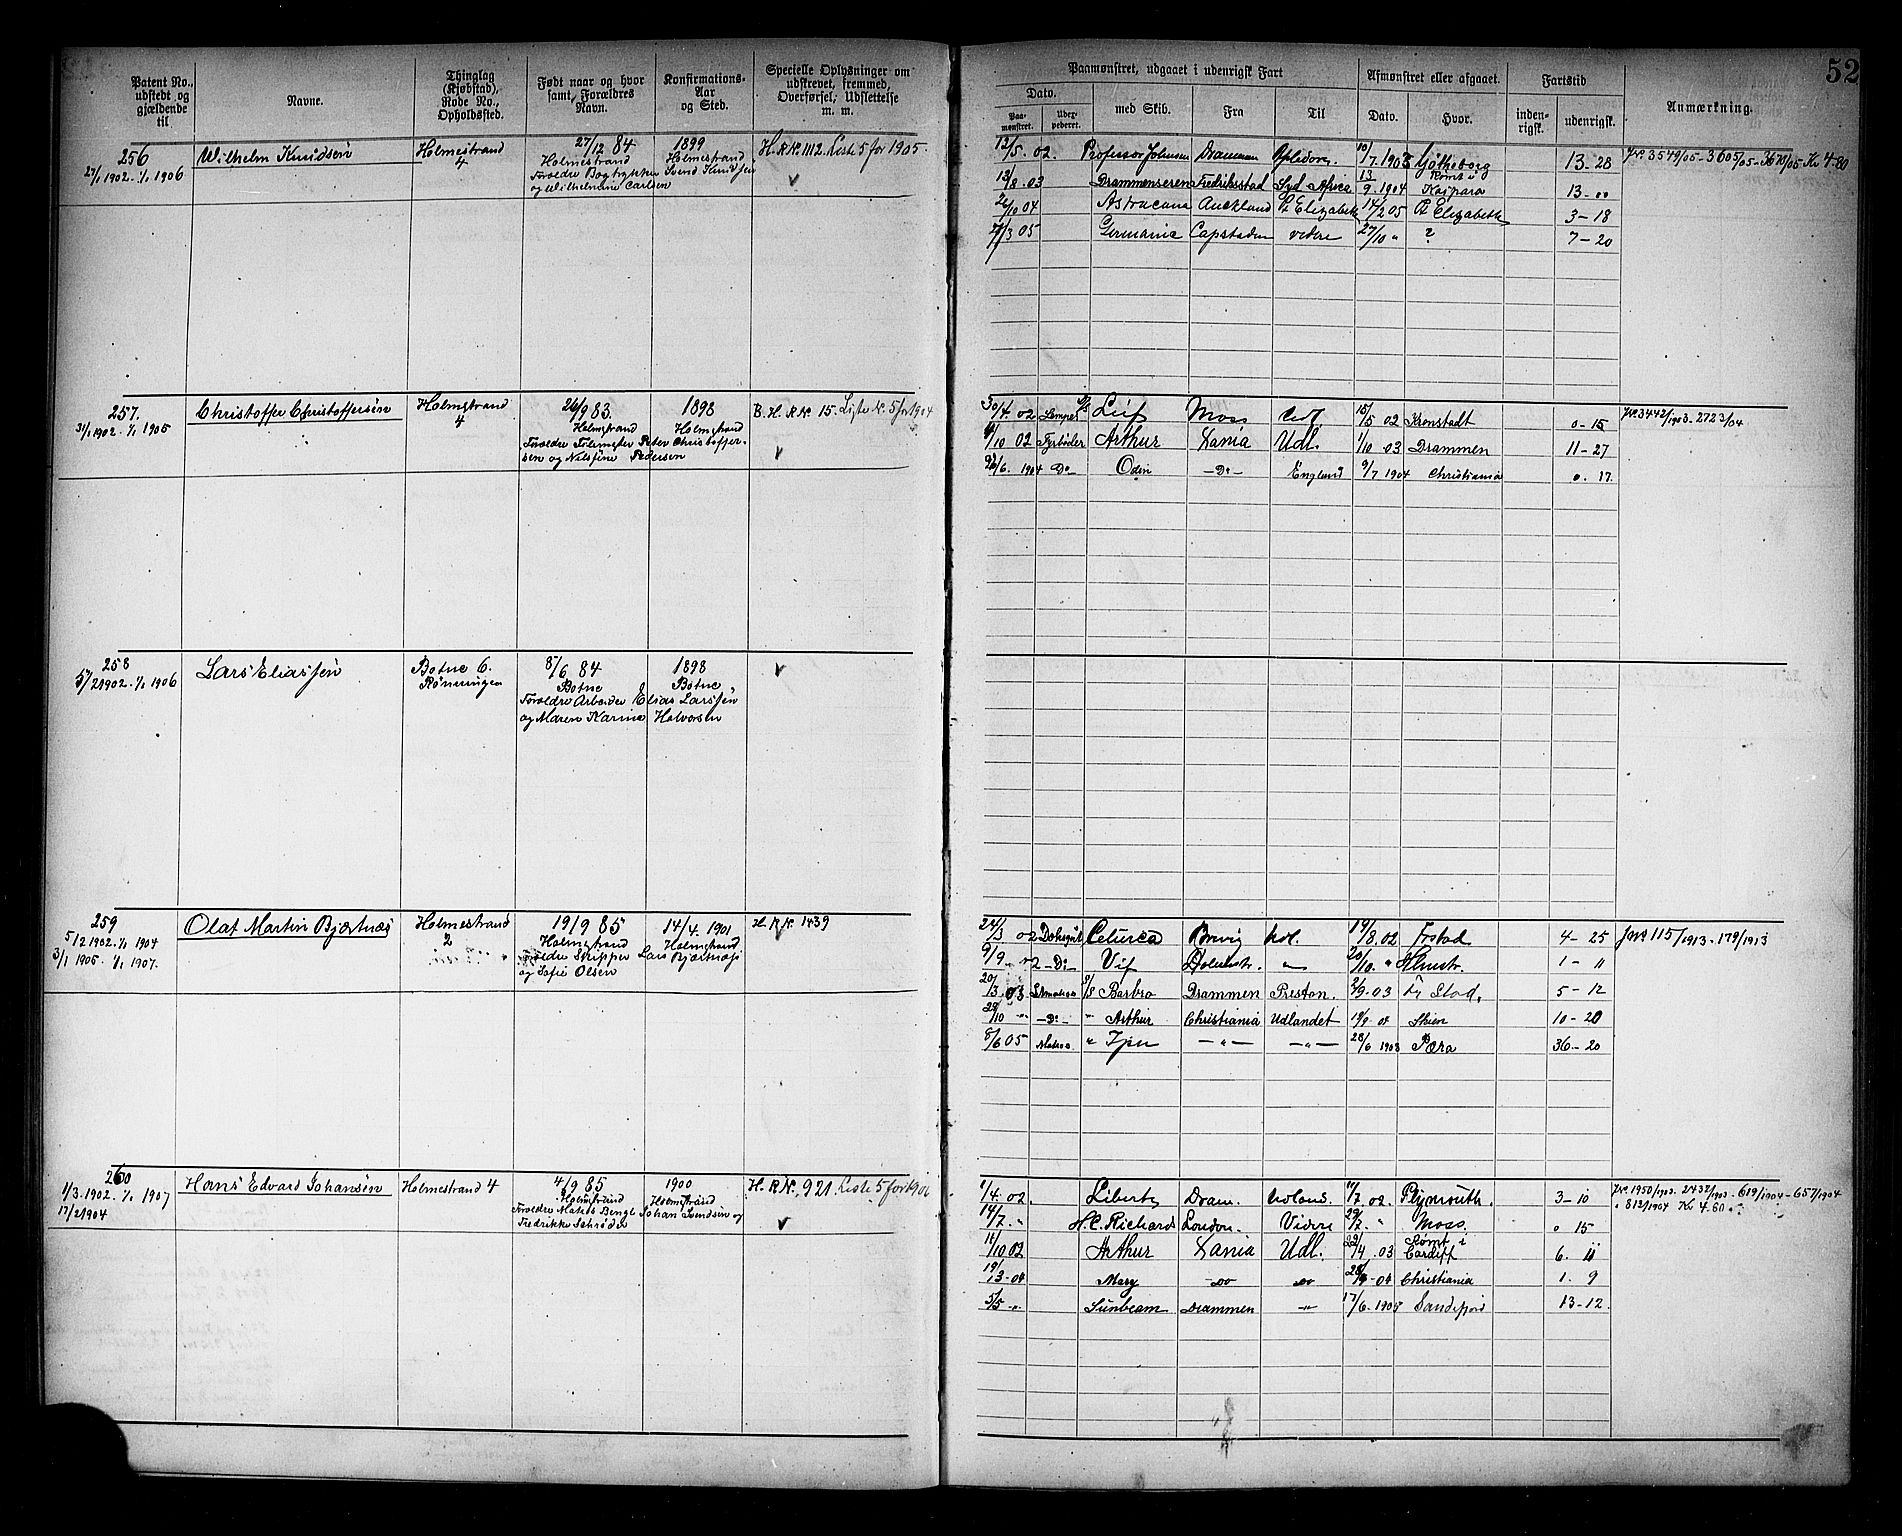 52
Patent No., udstedt og gjældende til
Navne.
Thinglag (Kjøbstad), Rode No., Opholdssted.
Født naar og hvor samt, Forældres Navn.
Konfirmations-Aar og Sted.
Specielle Oplysninger om udskrevet, fremmed, Overførsel, Udslettelse m. m.
Paamønstret, udgaaet i udenrigsk Fart
Dato.
Paa-mønstret.
med Skib.
Fra
Til
Afmønstret eller afgaaet.
Dato.
Hvor.
Fartstid
inden-rigsk.
udenrigsk.
Anmærkning.
256
27/1 1902. 1/1 1906
Wilhelm Knudsen
Holmestrand
4
27/12 84
Holmestrand
1899
Holmestrand
Forældre Bogtrykker Svend Knudsen
og Wilhelmine Carlsen
H. R. N. 1112. Liste 5 for 1905.
12/5. 02. Professor Johnsen Drammen 10/7. 1903 Gøtheborg 13 - 28
12/8. 03 Drammenseren Fredriksstad Syd Africa 13/9. 1904 Rømt i Kaipara 13 - 00
26/10 04 Astracana Auckland Pt Elizabeth 14/2 05 Pt Elizabeth 3 - 18
7/3 05 Germania Capstaden videre 27/10 " ? 7 - 20
JN. 3549/05 - 3605/05 - 3670/05 Kr 4.80
257.
31/1 1902. 1/1 1905
Christoffer Christoffersen
Holmestrand
4
26/9 83.
Holmestrand
1898
Holmestrand
Forældre Peter Christoffer-
sen og Nilsine Pedersen
B. H. R. N. 15. Liste N. 5 for 1904
30/4. 02 Lemper S/S Leif Moss Udl 15/5 02 Kronstadt 0 - 15
4/10 02 Fyrbøder Arthur Xania Udl. 1/10 03 Drammen 11 - 27
22/6. 1904 Do Odin - Do - England 9/7 1904 Christiania 0. 17.
JN. 3442/1903. 2723/04
258
5/2 1902. 1/1 1906
Lars Eliassen
Botne 6.
Rønningen
8/6 84
Botne
1898
Botne
Forældre Arbeider Elias Larssen
og Maren Karine Halvorsen
259
5/2 1902. 1/1 1904
3/1 1905. 1/1 1907.
Olaf Martin Bjertnæs
Holmestrand
2
19/9 85
Holmestrand
14/4. 1901
Holmestrand
Forældre Skipper Lars Bjertnæs
og Sofie Olsen
H. R. N. 1439
24/3 02 Brevig Hol. 19/8. 02 Frstad 4 - 25
9/9 - Do - Vif 20/10. " 1 - 11
20/3. 03 S/S Barbro Drammen Preston. 2/9. 03 Fr Stad, 5 - 12
28/10 " - Do - " Arthur Christiania Udlandet 19/9. 04 Skien 10 - 20
8/6 05 Matros " - " - - " - 28/6 1908 Pæra 36 - 20
JN. 115/1913 - 179/1913
260
1/3. 1902. 1/1 1907
17/2 1904
Hans Edvard Johansen
Holmestrand 4
4/9 85
Holmestrand
1900
Holmestrand
Johan Svendsen og
Fredrikke Schrøder
H. R. N. 921. Liste 5 for 1906
11/4. 02. Liberty Dram. Holand. 11/7. 02. Plymouth 3 - 10
14/7. " H. C. Richards London. Vidre 29/7. " Moss. 0 15
11/10 02 Arthur Xania Udl. 22/4. 03 Rømt i Cardiff 6. 11
19/3 - 04 Mary - do do 28/4 - 04 Christiania 1. 9
5/5 " Sunbeam Drammen - " - 17/6. 1905 Sandefjord 13 - 12.
JN. 1950/1903. 2432/1903 - 619/1904 - 657/1904
" 812/1904 Kr 4.60